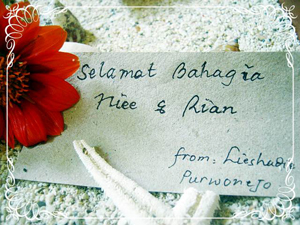 Selamat Bahagia
Niee & Rian
from: Lieshadie
Purworejo